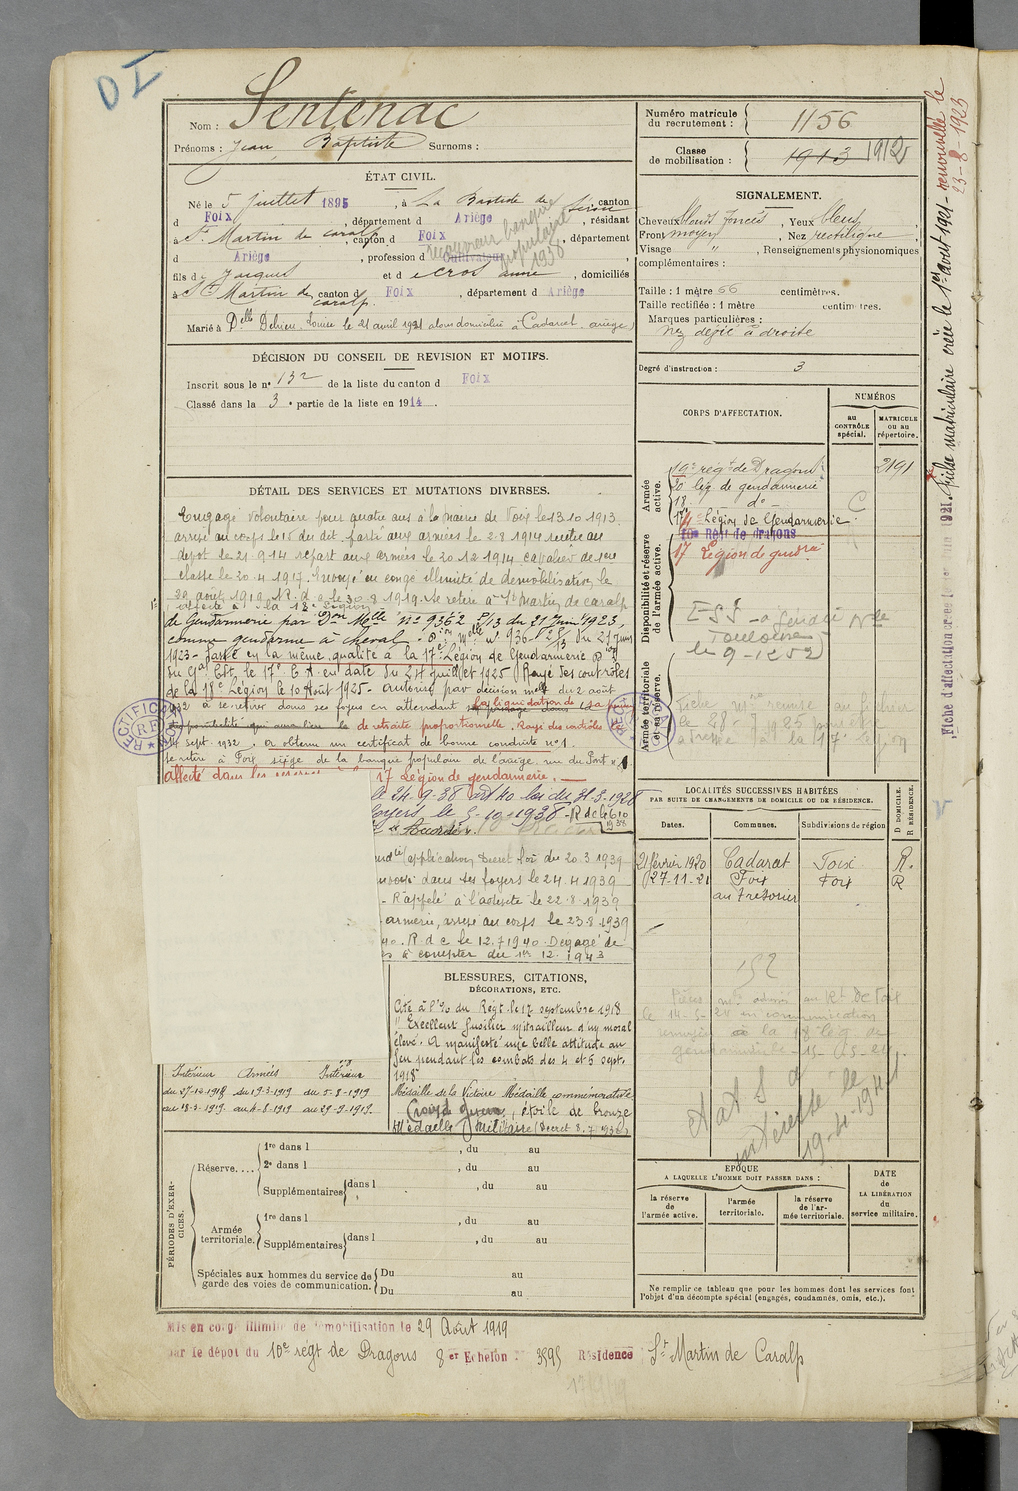 DI
Nom : Sentenac
Prénoms : Jean Baptiste Surnoms :
ÉTAT CIVIL.
Né le 5 juillet 1895, à La Bastide de Sérou, canton
d Foix, département d Ariège, résidant
à St Martin de Caralp, canton d Foix, département
d Ariège, profession d Cultivateur
recouvreur banque populaire 1938
fils de Jacques et d Cros anne, domiciliés
à St Martin de Caralp, canton d Foix, département d Ariège
Marié à Delle Dehieu Louise le 21 avril 1921 alors domicilié à Cadarcet, ariège
DÉCISION DU CONSEIL DE REVISION ET MOTIFS.
Inscrit sous le n° 132 de la liste du canton d Foix
Classé dans la 3e partie de la liste en 1914.
DÉTAIL DES SERVICES ET MUTATIONS DIVERSES.
Engagé volontaire pour quatre ans à la mairie de Foix le 13.10.1913.
arrivé au corps le 15 du dit. parti aux armées le 2.8.1914 rentré au
dépôt le 21.9.14 repart aux armées le 20.12.1914 cavalier de 1ere
classe le 20.4.1917. Envoyé en congé illimité de démobilisation le
29 août 1919 le 30.8.1919. Se retire à St Martin de caralp
affecté à la 18e Légion
de Gendarmerie par Don Mlle N° 9362 2/13 du 21 juin 1923,
comme gendarme à cheval. Don mlle n° 936 2/13 du 21 juin
1923 - Passé en la même qualité à la 17e Légion de Gendarmerie
du Gal Ct le 17e C.A. en date du 24 juillet 1925 Rayé des contrôles
de la 18e Légion le 10 Août 1925 - autorisé par décision melle du 2 août
1932 à se retirer dans ses foyers en attendant la liquidation de sa pension
de retraite proportionnelle. Rayé des contrôles
sept. 1932. a obtenu un certificat de bonne conduite n° 1.
se retire à Foix, siège de la banque populaire de l'ariège, rue du Pont n° 1.
affecté dans les 17 Légion de gendarmerie.
le 24.9.38 art 40 loi du 31-3-1928
foyers le 5-10-1938 - R d c le 6 10 1938
application Decret loi du 20.3.1939
dans ses foyers le 24.4.1939
- Rappelé à l'activité le 22.8.1939
armerie, arrivé au corps le 23.8.1939
40. R.d.c le 12.7.1940. Dégagé de
à compter du 1er 12.1943
BLESSURES, CITATIONS,
DÉCORATIONS, ETC.
Cité à l'% du Régt. le 17 septembre 1918
"Excellent fusilier mitrailleur d'un moral
élevé. A manifesté une belle attitude au
feu pendant les combats des 4 et 5 sept.
1918"
Médaille de la Victoire Médaille commémorative
Croix de guerre, étoile de bronze
Médaille Militaire (Decret 8.7.193
Intérieur Armées Intérieur
du 27-12-1918 du 19-3-1919 du 5-8-1919
au 18-3-1919. au 4-8-1919 au 29-9-1919.
PÉRIODES D'EXERCICES.
Réserve....
1re dans l , du au
2e dans l , du au
Supplémentaires dans l , du au
Armée territoriale.
1re dans l , du au
Supplémentaires dans l , du au
Spéciales aux hommes du service de garde des voies de communication.
Du au
Du au
Mis en congé illimité de démobilisation le 29 Août 1919
par le dépôt du 10e régt de Dragons 8er Echelon N° 3595 Résidence St Martin de Caralp
Numéro matricule du recrutement : 1156
Classe de mobilisation : 1913 1912
SIGNALEMENT.
Cheveux blonds foncés, Yeux bleus,
Front moyen, Nez rectiligne,
Visage ", Renseignements physionomiques
complémentaires :
Taille : 1 mètre 66 centimètres.
Taille rectifiée : 1 mètre centimètres.
Marques particulières :
Nez dévié à droite
Degré d'instruction : 3
CORPS D'AFFECTATION.
NUMÉROS
au CONTRÔLE spécial.
MATRICULE ou au répertoire.
Armée active.
19e régt de Dragons 2191
20 leg. de gendarmerie
18 do
17e Légion de Gendarmerie.
Disponibilité et réserve de l'armée active.
10e Régt de dragons
17 Légion de gendrie
Toulouse
Armée territoriale et sa réserve.
RECTIFICATION RF
LOCALITÉS SUCCESSIVES HABITÉES
PAR SUITE DE CHANGEMENTS DE DOMICILE OU DE RÉSIDENCE.
Dates. Communes. Subdivisions de région D DOMICILE. R RÉSIDENCE.
21 février 1920 Cadarcet Foix R.
27-11-21 Foix Foix R
au Trésorier
152
ÉPOQUE
A LAQUELLE L'HOMME DOIT PASSER DANS :
la réserve de l'armée active.
l'armée territoriale.
la réserve de l'armée territoriale.
DATE de LA LIBÉRATION du service militaire.
Ne remplir ce tableau que pour les hommes dont les services font
l'objet d'un décompte spécial (engagés, condamnés, omis, etc.).
Fiche matriculaire créée le 1er août 1921 - renouvelée le 23-8-1923